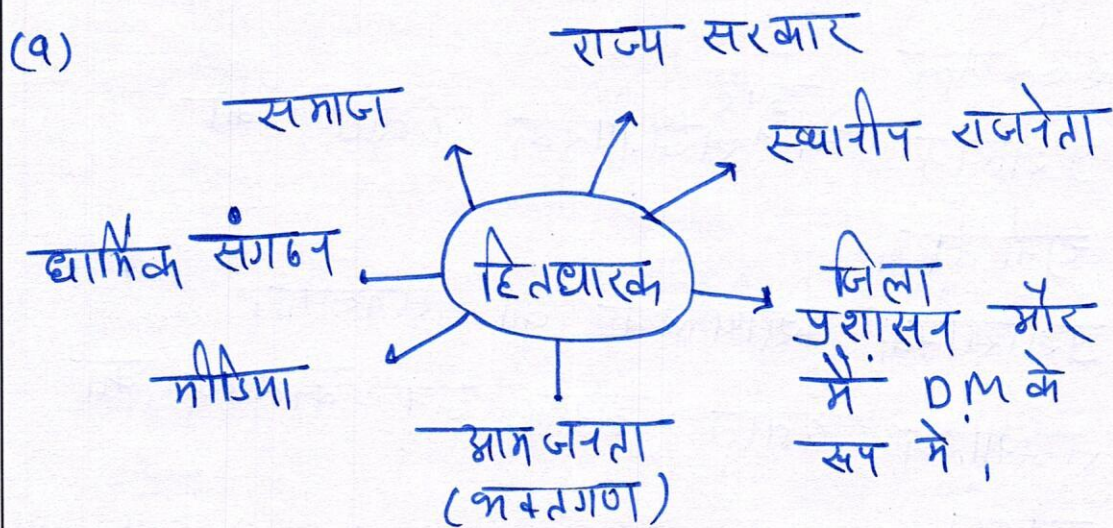 (१)
राज्य सरकार
समाज
स्थानीय राजनेता
धार्मिक संगठन
हितधारक
जिला
प्रशासन और
मैं DM के
रूप में,
मीडिया
आम जनता
(भक्तगण)